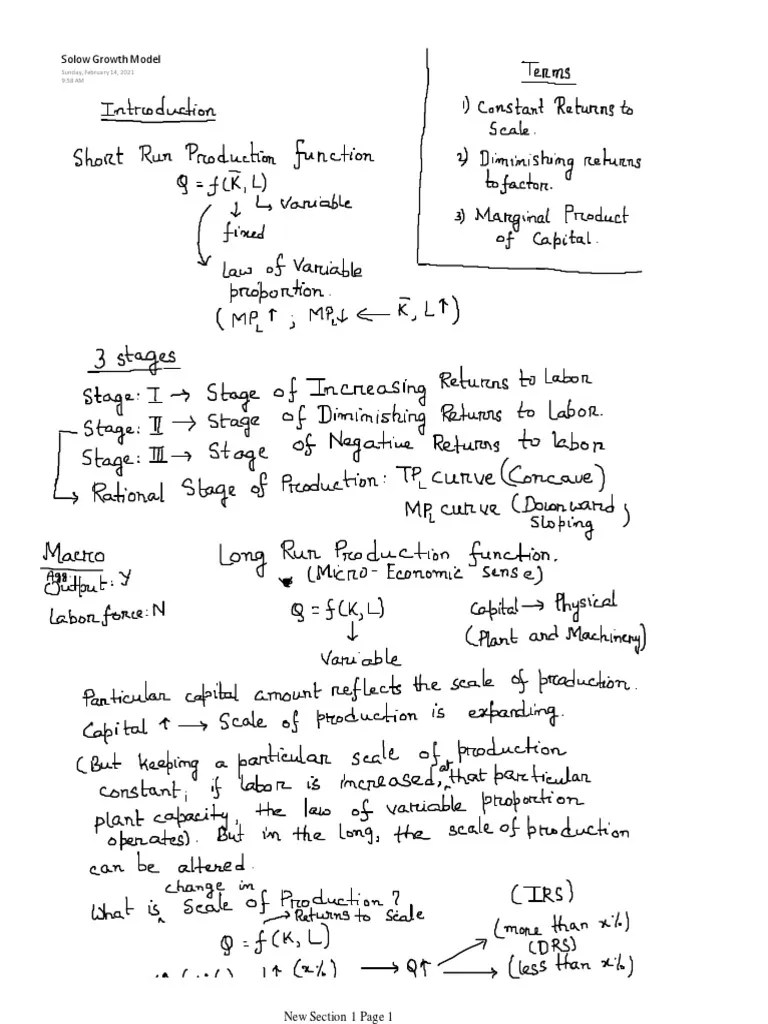 Solow Growth Model
Sunday, February 14, 2021
9:58 AM
Introduction
Short Run Production function
Q = f(K̄, L)
↓ ↳ variable
fixed
Law of Variable
proportion.
(MP_L ↑ ; MP_L ↓ ← K̄, L↑)
Terms
1) Constant Returns to
Scale.
2) Diminishing returns
to factor.
3) Marginal Product
of Capital.
3 stages
Stage: I → Stage of Increasing Returns to Labor
Stage: II → Stage of Diminishing Returns to Labor.
Stage: III → Stage of Negative Returns to labor
↳ Rational Stage of Production: TP_L curve (Concave)
MP_L curve (Downward
Sloping)
Macro
Agg
Output: Y
Labor force: N
Long Run Production function.
(Micro-Economic sense)
Q = f(K, L)
↓
Variable
Capital → Physical
(Plant and Machinery)
Particular capital amount reflects the scale of production.
Capital ↑ → Scale of production is expanding.
(But keeping a particular scale of production
constant, if labor is increased, at that particular
plant capacity, the law of variable proportion
operates). But in the long, the scale of production
can be altered.
What is change in Scale of Production?
→ Returns to Scale
Q = f(K, L)
↑ (x%) → Q↑
(IRS)
(more than x%)
(DRS)
(less than x%)
New Section 1 Page 1